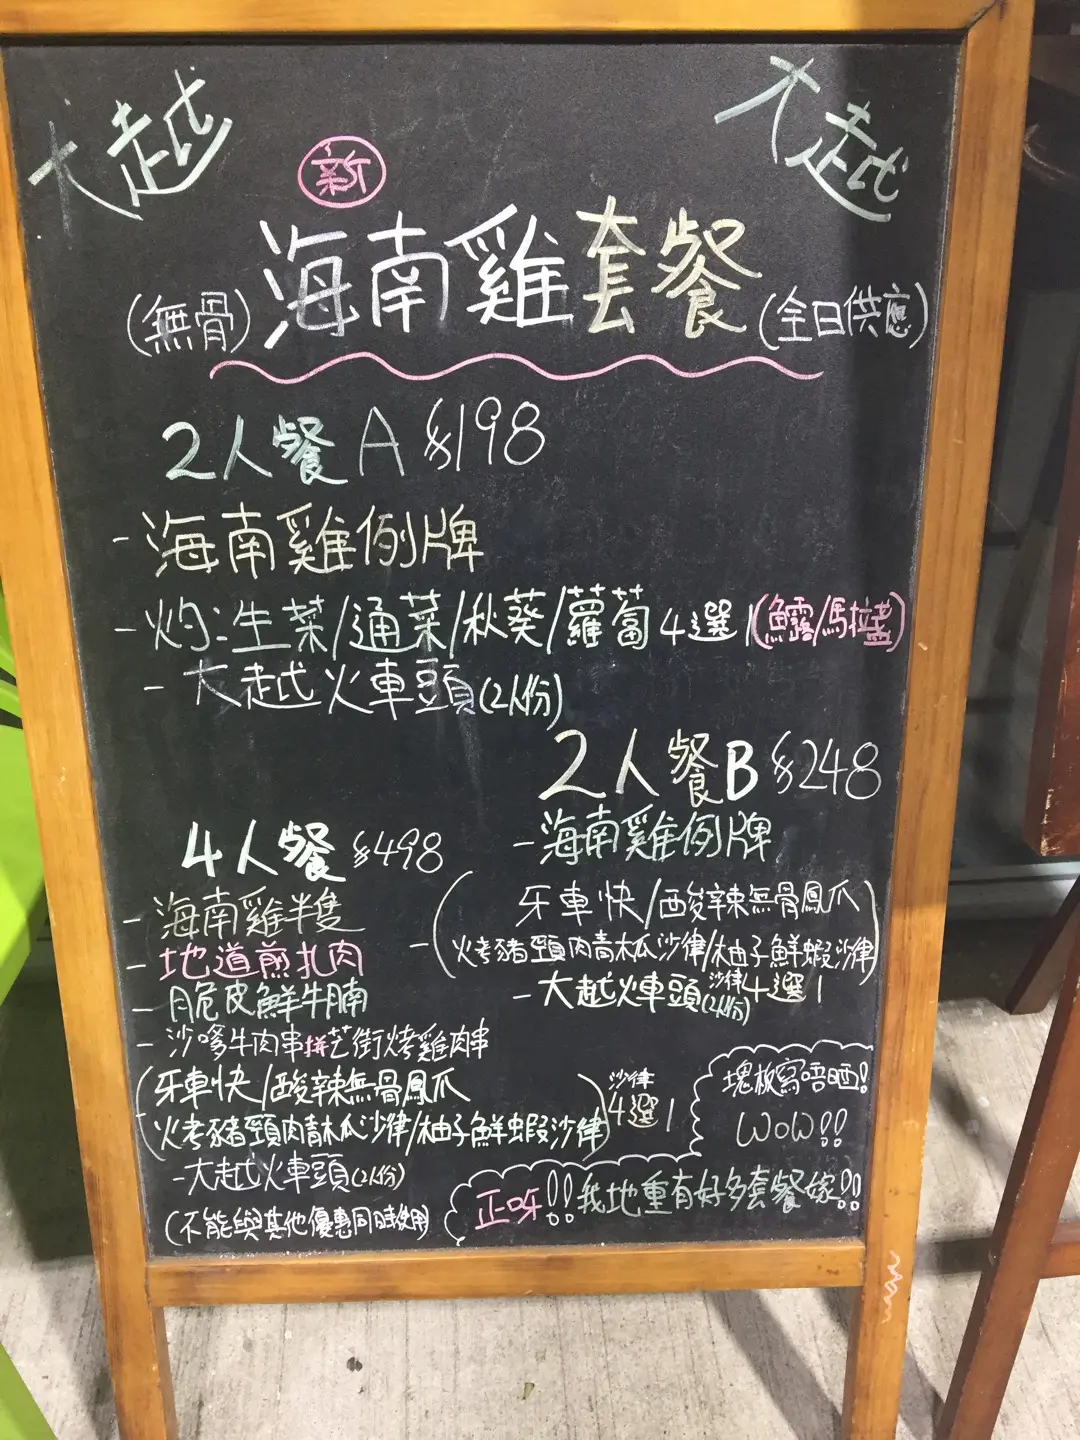 大越
大越
新
(無骨) 海南雞套餐 (全日供應)
2人餐A $198
-海南雞例牌
-灼:生菜/通菜/秋葵/蘿蔔 4選1
-大越火車頭(2人份)
2人餐B $248
-海南雞例牌
牙車快/酸辣無骨鳳爪
-火考豬頸肉青木瓜沙律/柚子鮮蝦沙律
沙律4選1
-大越火車頭(2人份)
4人餐 $498
-海南雞半隻
-地道煎扎肉
-脆皮鮮牛腩
-沙嗲牛肉串拼芝街烤雞肉串
(牙車快/酸辣無骨鳳爪
火考豬頸肉青木瓜沙律/柚子鮮蝦沙律)
沙律4選1
-大越火車頭(2人份)
(不能與其他優惠同時使用)
塊板寫唔晒!
WOW!!
正呀!!我地重有好多套餐嫁!!